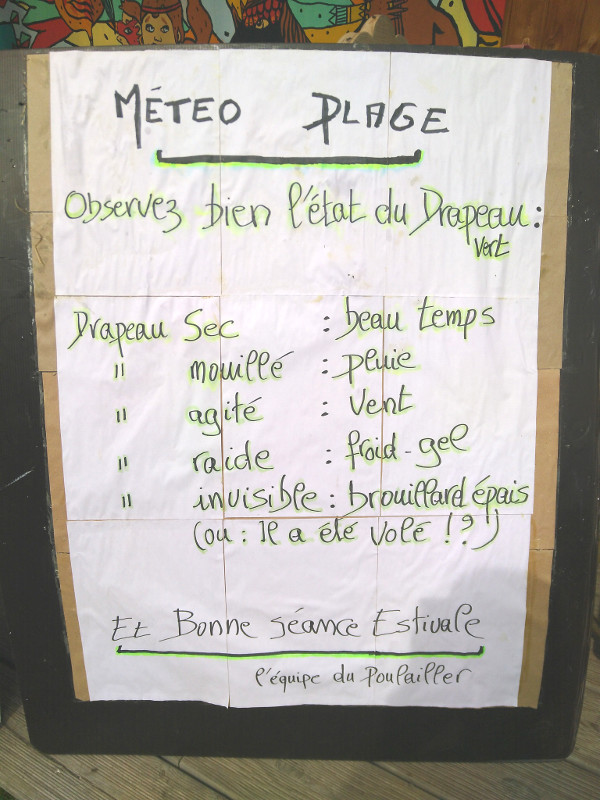 MÉTEO PLAGE
Observez bien l'état du Drapeau :
vert
Drapeau Sec : beau temps
" mouillé : pluie
" agité : Vent
" raide : froid-gel
" invisible : brouillard épais
(ou : Il a été volé !?")
Et Bonne séance Estivale
l'équipe du Poulailler